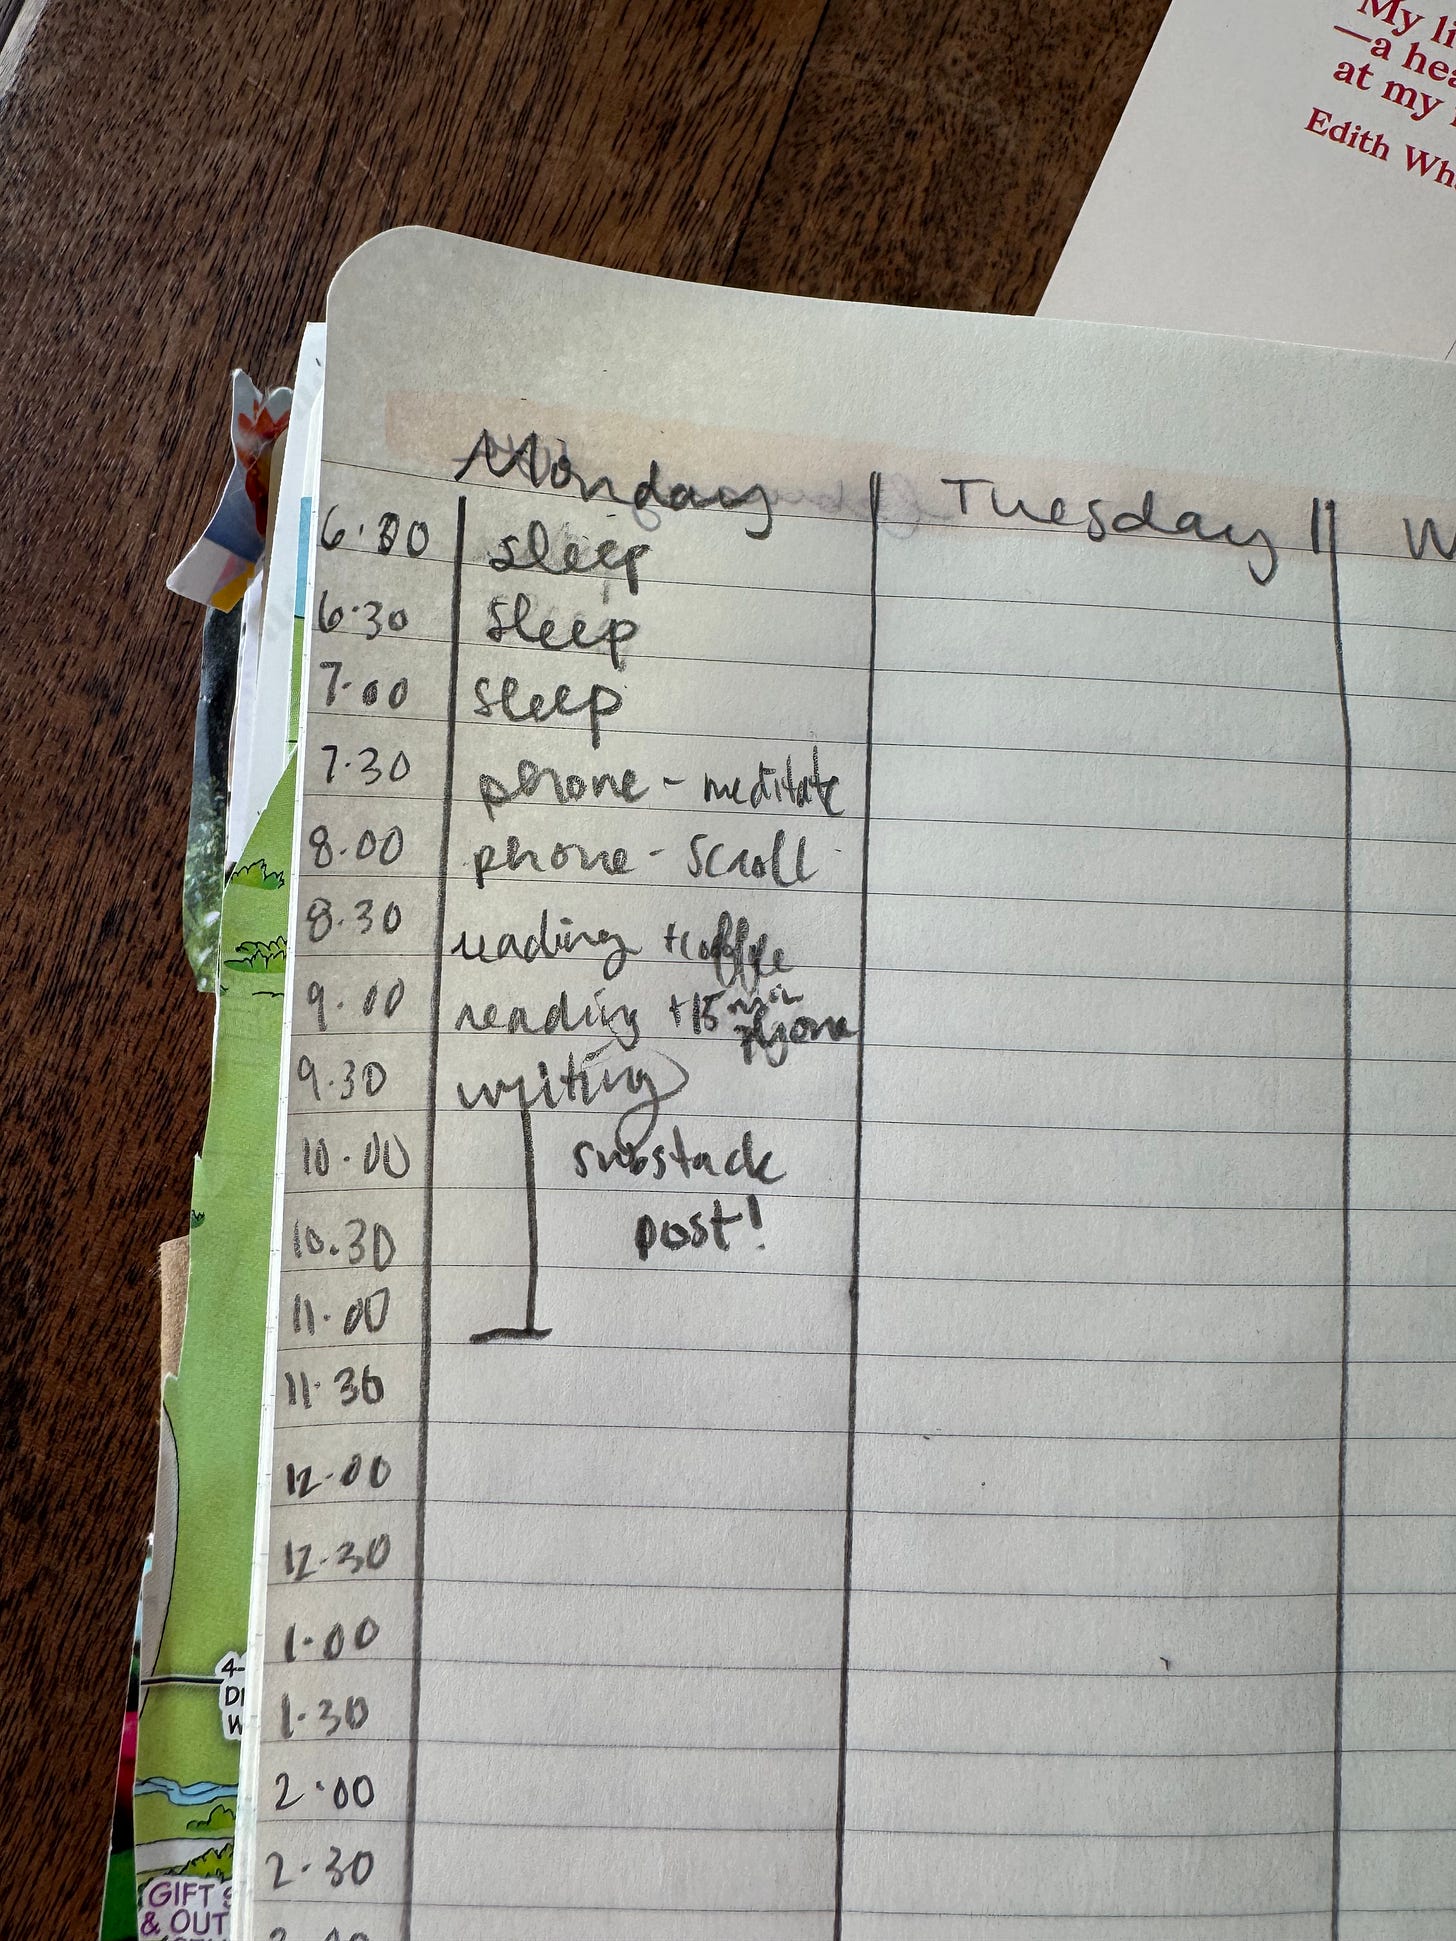 My li
—a hea
at my
Edith Wh
Monday Tuesday W
6.00 sleep
6.30 sleep
7.00 sleep
7.30 phone - meditate
8.00 phone - scroll
8.30 reading + coffee
9.00 reading + 15 min phone
9.30 writing
10.00 substack
10.30 post!
11.00
11.30
12.00
12.30
1.00
1.30
2.00
2.30
4-
DI
W
GIFT S
& OUT